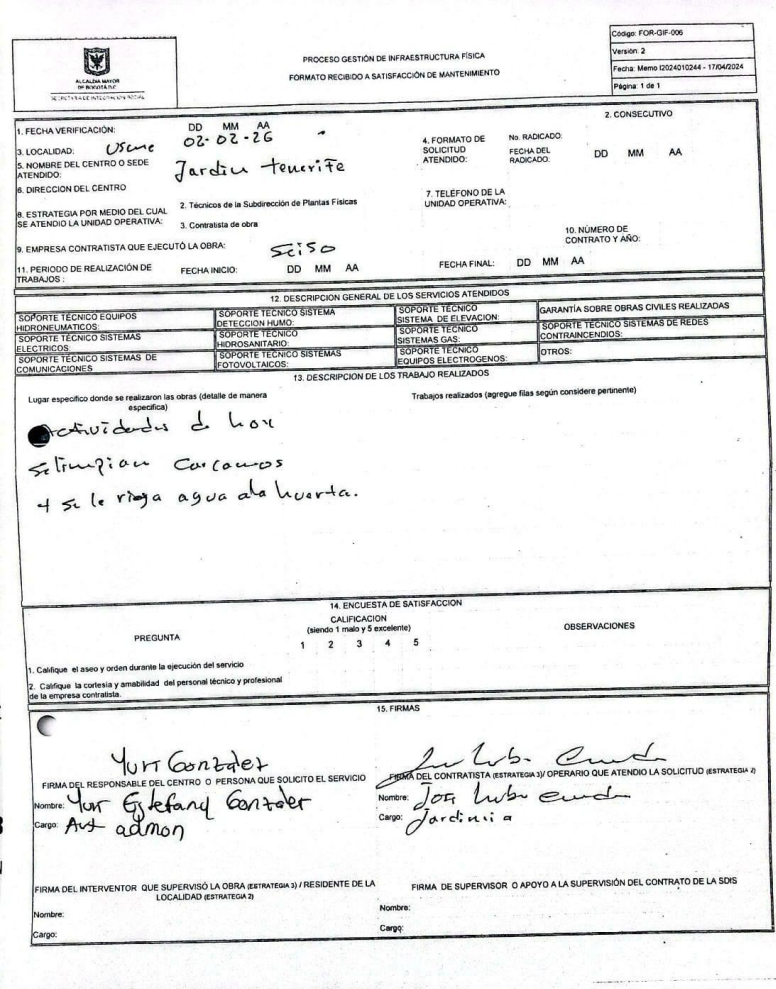 Código: FOR-GIF-006
Versión: 2
Fecha: Memo I2024010244 - 17/04/2024
Página: 1 de 1
ALCALDÍA MAYOR
DE BOGOTÁ D.C.
SECRETARÍA DE INTEGRACIÓN SOCIAL
PROCESO GESTIÓN DE INFRAESTRUCTURA FÍSICA
FORMATO RECIBIDO A SATISFACCIÓN DE MANTENIMIENTO
2. CONSECUTIVO
1. FECHA VERIFICACIÓN: DD MM AA
02-02-26
3. LOCALIDAD: Usme
4. FORMATO DE SOLICITUD ATENDIDO:
No. RADICADO:
FECHA DEL RADICADO: DD MM AA
5. NOMBRE DEL CENTRO O SEDE ATENDIDO: Jardin tenerife
6. DIRECCION DEL CENTRO
7. TELÉFONO DE LA UNIDAD OPERATIVA:
8. ESTRATEGIA POR MEDIO DEL CUAL SE ATENDIO LA UNIDAD OPERATIVA:
2. Técnicos de la Subdirección de Plantas Físicas
3. Contratista de obra
9. EMPRESA CONTRATISTA QUE EJECUTÓ LA OBRA: Seiso
10. NÚMERO DE CONTRATO Y AÑO:
11. PERIODO DE REALIZACIÓN DE TRABAJOS :
FECHA INICIO: DD MM AA
FECHA FINAL: DD MM AA
12. DESCRIPCION GENERAL DE LOS SERVICIOS ATENDIDOS
SOPORTE TÉCNICO EQUIPOS HIDRONEUMATICOS:
SOPORTE TÉCNICO SISTEMA DETECCION HUMO:
SOPORTE TÉCNICO SISTEMA DE ELEVACION:
GARANTÍA SOBRE OBRAS CIVILES REALIZADAS
SOPORTE TÉCNICO SISTEMAS ELECTRICOS:
SOPORTE TÉCNICO HIDROSANITARIO:
SOPORTE TÉCNICO SISTEMAS GAS:
SOPORTE TÉCNICO SISTEMAS DE REDES CONTRAINCENDIOS:
SOPORTE TÉCNICO SISTEMAS DE COMUNICACIONES
SOPORTE TÉCNICO SISTEMAS FOTOVOLTAICOS:
SOPORTE TÉCNICO EQUIPOS ELECTROGENOS:
OTROS:
13. DESCRIPCION DE LOS TRABAJO REALIZADOS
Lugar especifico donde se realizaron las obras (detalle de manera especifica)
Trabajos realizados (agregue filas según considere pertinente)
actividades de hoy
se limpian Carcamos
y se le riega agua ala huerta.
14. ENCUESTA DE SATISFACCION
PREGUNTA
CALIFICACION
(siendo 1 malo y 5 excelente)
1 2 3 4 5
OBSERVACIONES
1. Califique el aseo y orden durante la ejecución del servicio
2. Califique la cortesía y amabilidad del personal técnico y profesional de la empresa contratista.
15. FIRMAS
Yuri Gonzalez
FIRMA DEL RESPONSABLE DEL CENTRO O PERSONA QUE SOLICITO EL SERVICIO
Nombre: Yuri Estefany Gonzalez
Cargo: Aux admon
FIRMA DEL CONTRATISTA (ESTRATEGIA 3)/ OPERARIO QUE ATENDIO LA SOLICITUD (ESTRATEGIA 2)
Nombre: Jose
Cargo: Jardineria
FIRMA DEL INTERVENTOR QUE SUPERVISÓ LA OBRA (ESTRATEGIA 3) / RESIDENTE DE LA LOCALIDAD (ESTRATEGIA 2)
Nombre:
Cargo:
FIRMA DE SUPERVISOR O APOYO A LA SUPERVISIÓN DEL CONTRATO DE LA SDIS
Nombre:
Cargo: